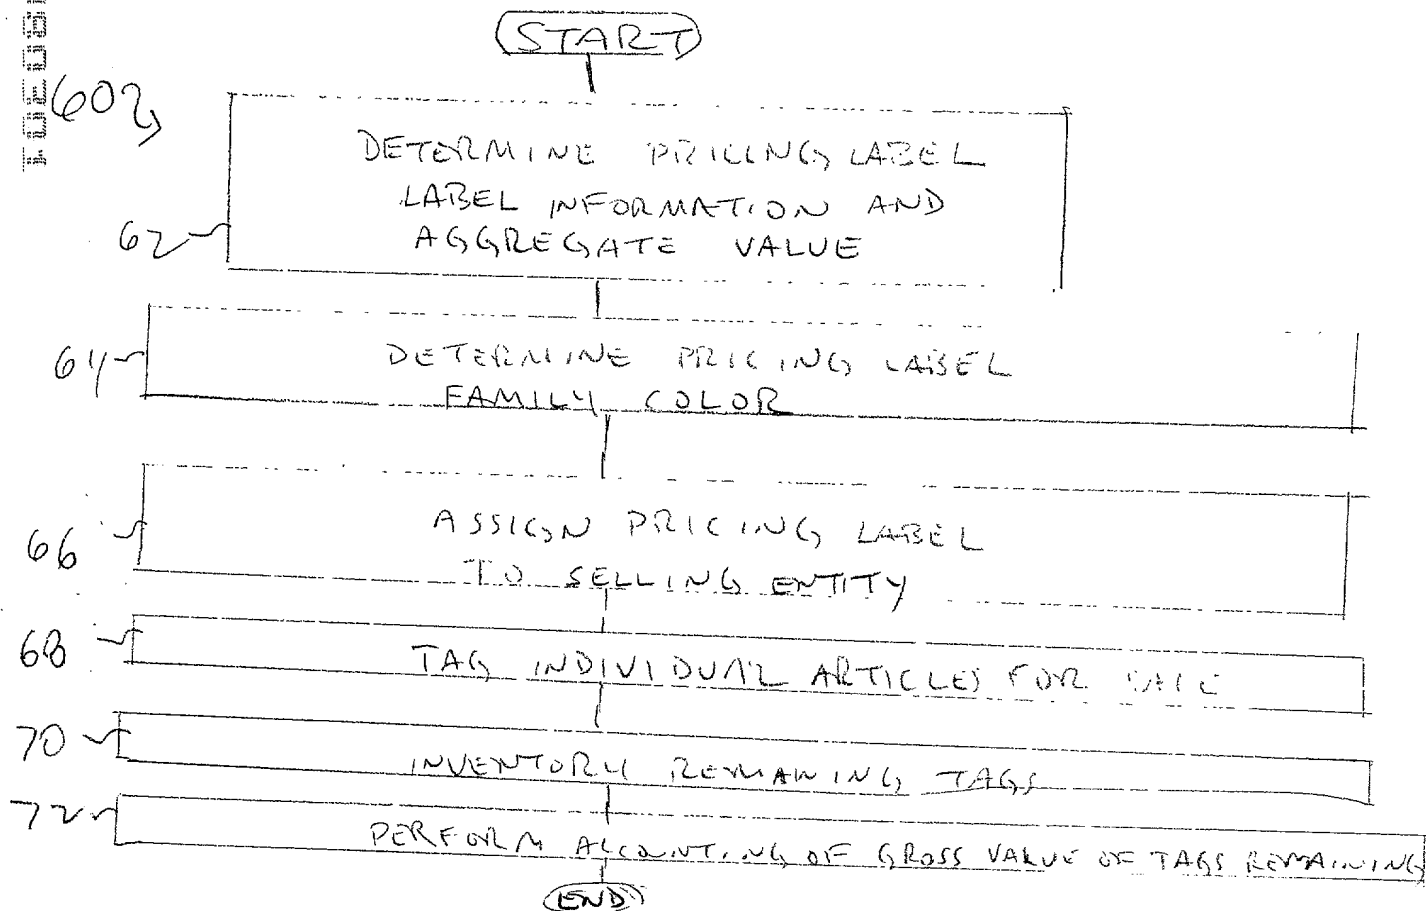 START
602
DETERMINE PRICING LABEL
LABEL INFORMATION AND
62
AGGREGATE VALUE
64
DETERMINE PRICING LABEL
FAMILY COLOR
66
ASSIGN PRICING LABEL
TO SELLING ENTITY
68
TAG INDIVIDUAL ARTICLES FOR SALE
70
INVENTORY REMAINING TAGS
72
PERFORM ACCOUNTING OF GROSS VALUE OF TAGS REMAINING
END